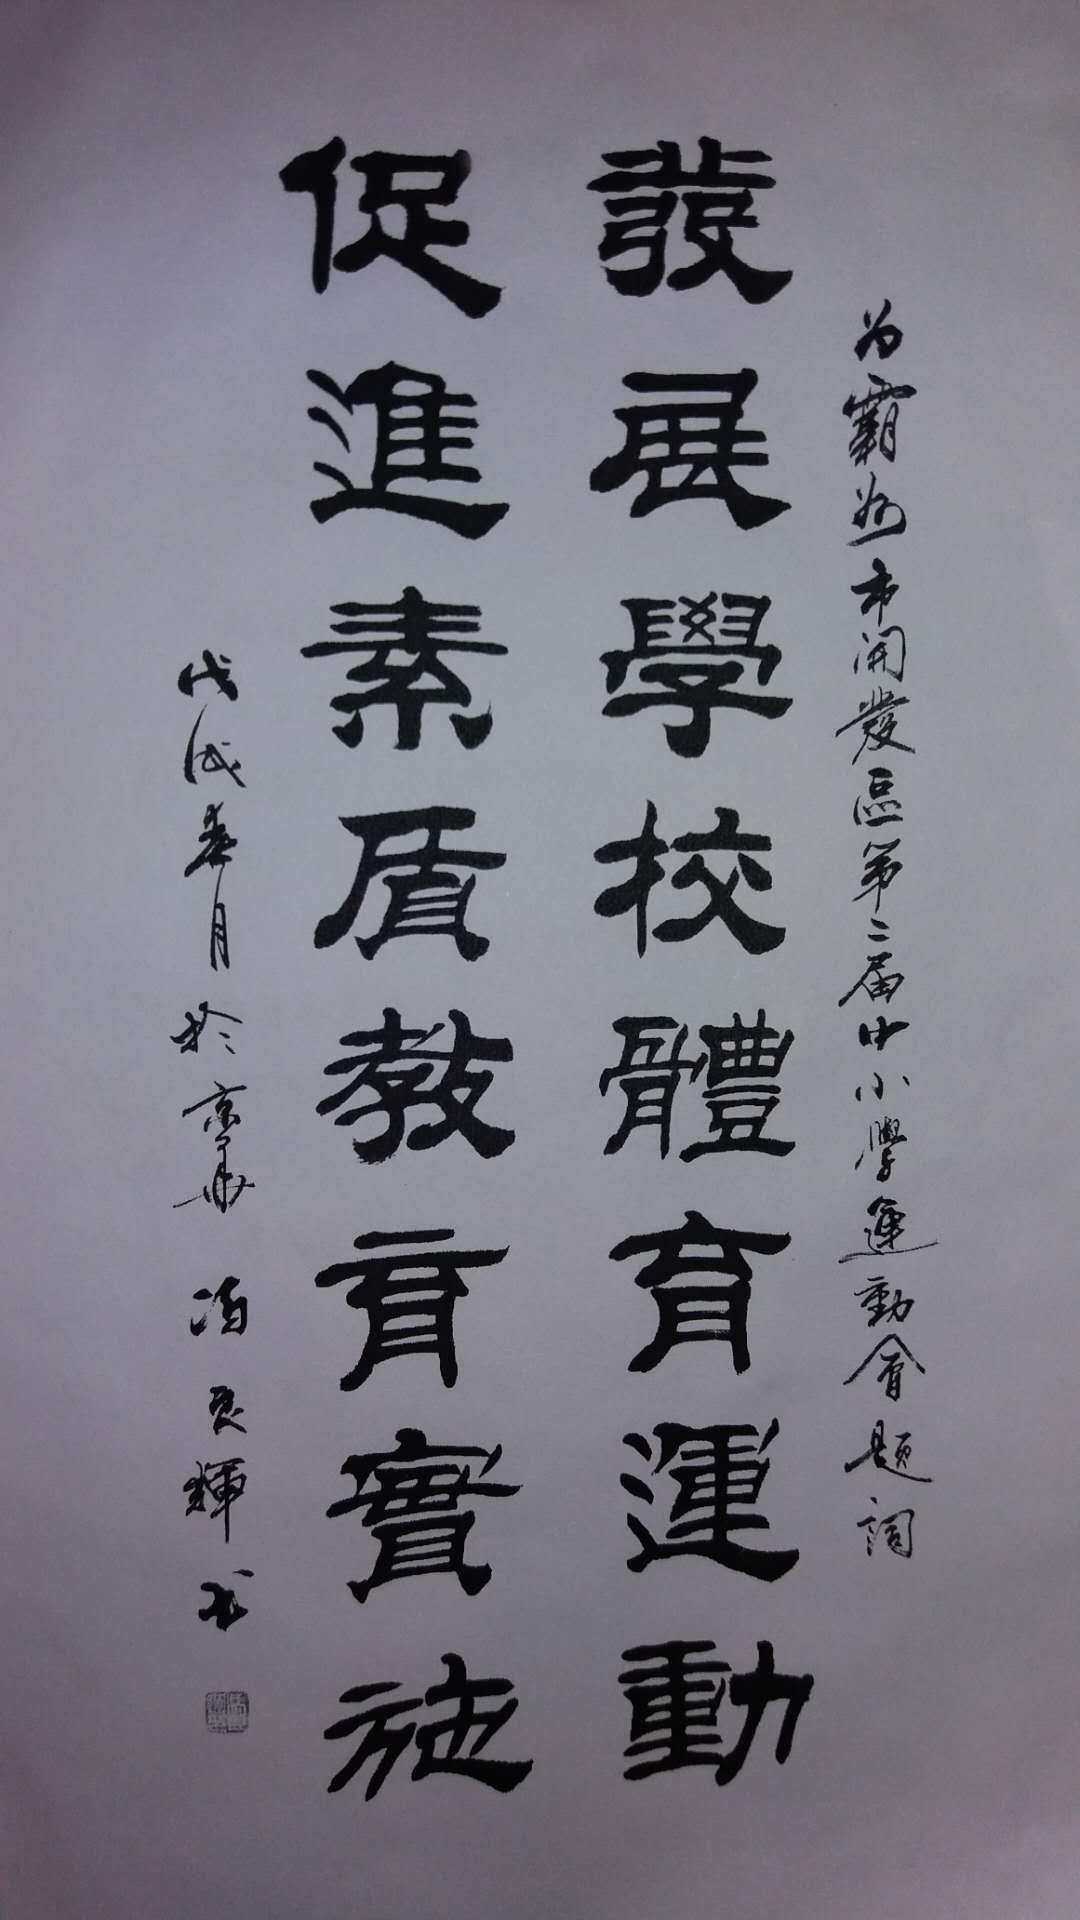 为霸州市開發區第二届中小學運動會題詞
發展學校體育運動
促進素盾教育實施
戊戌春月於京華 馮良輝书